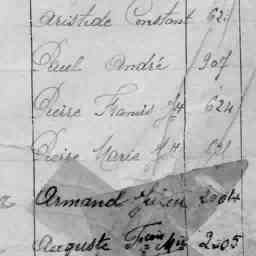 Aristide Constant 62
Paul André 207
Pierre Francis 624
Pierre Marie
Armand Julien 2004
Auguste 2005